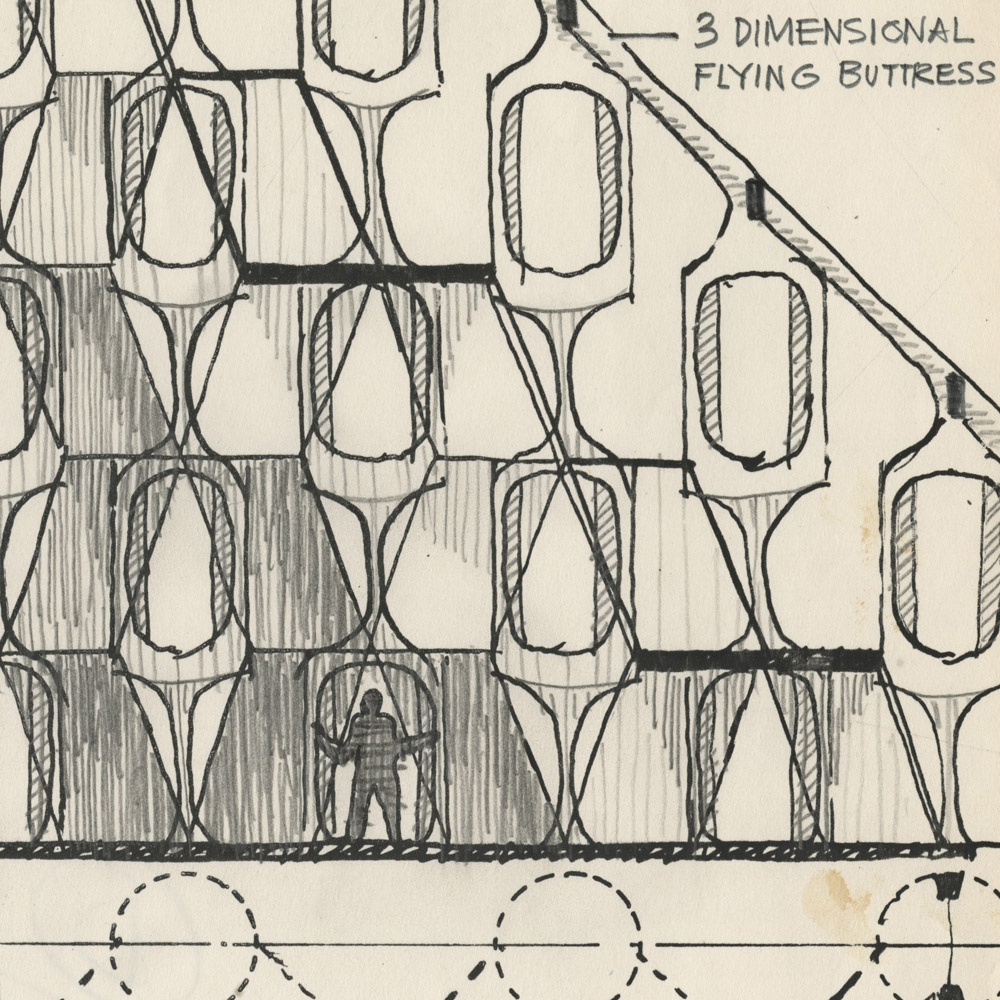 3 DIMENSIONAL
FLYING BUTTRESS